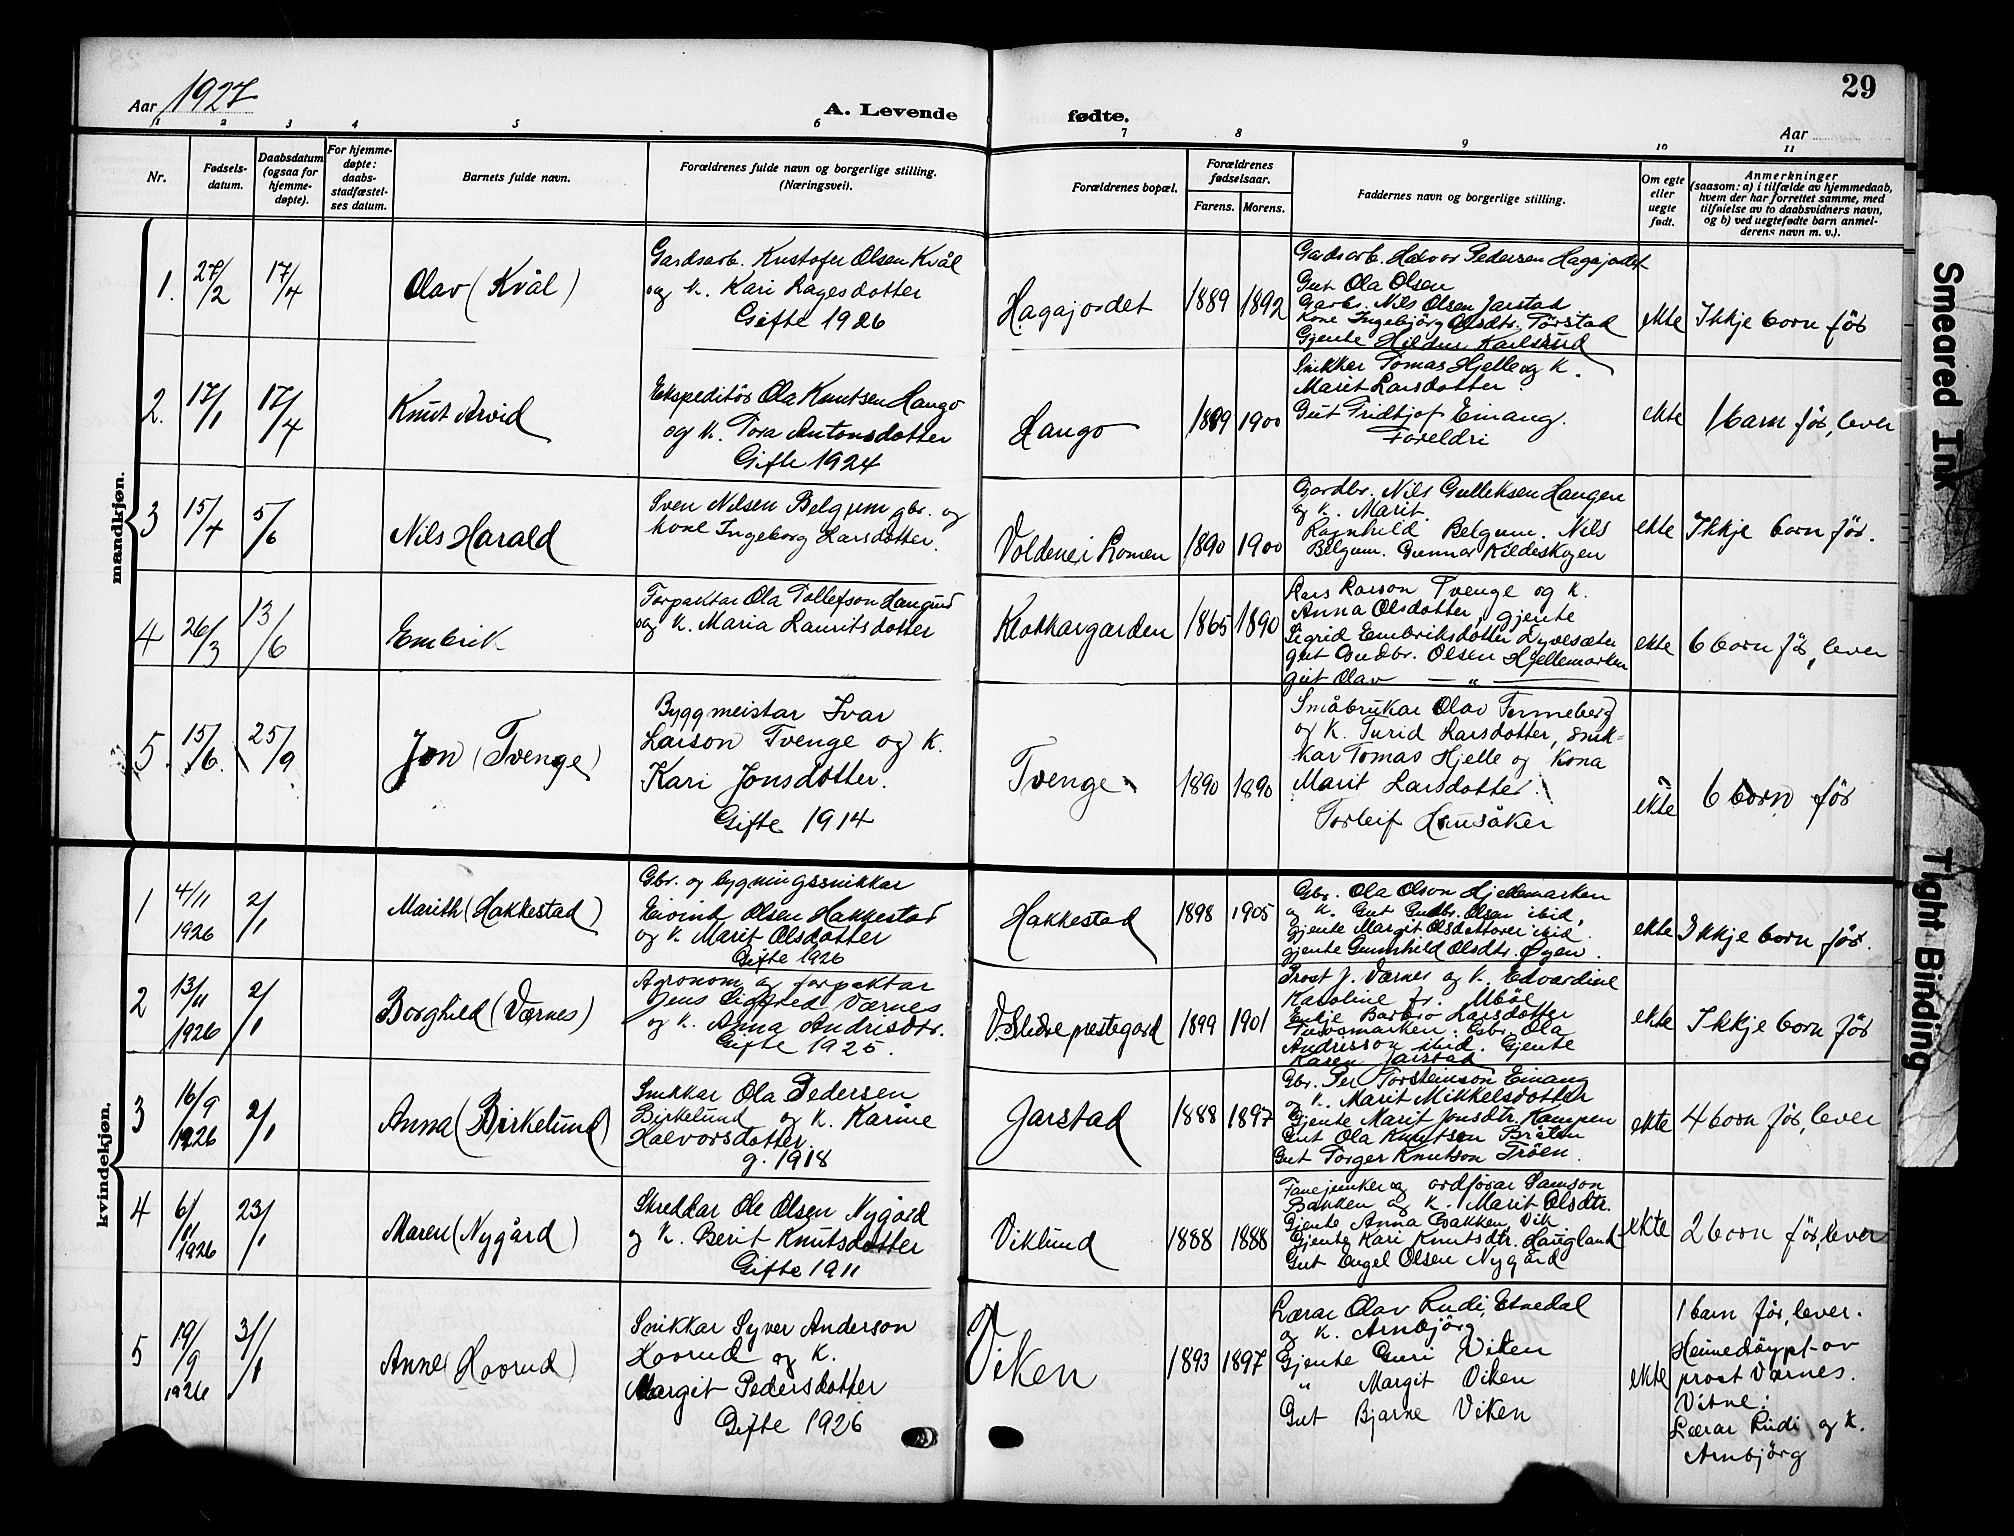 29
Aar 1927
A. Levende fødte.
Aar
1 2 3 4 5 6 7 8 9 10 11
Nr.
Fødsels-
datum.
Daabsdatum
(ogsaa for
hjemme-
døpte).
For hjemme-
døpte:
daabs-
stadfæstel-
ses datum.
Barnets fulde navn.
Forældrenes fulde navn og borgerlige stilling.
(Næringsvei).
Forældrenes bopæl.
Forældrenes
fødselsaar.
Farens. Morens.
Faddernes navn og borgerlige stilling.
Om egte
eller
uegte
født.
Anmerkninger
(saasom: a) i tilfælde av hjemmedaab,
hvem der har forrettet samme, med
tilføielse av to daabsvidners navn,
og b) ved uegtefødte barn anmel-
derens navn m. v.).
mandkjøn.
1. 27/2 17/4 Olav (Kvål)
Gardsarb. Kristofer Olsen Kvål
og k. Kari Lagesdotter
Gifte 1926
Hagajordet 1889 1892
Gardsarb. Halvor Pedersen Hagajordet
Gut Ola Olsen
Garbr. Nils Olsen Jarstad
Kone Ingebjörg Olsdtr. Torstad
Gjente Hildur Karlsrud
ekte Ikkje born för
2. 17/1 17/4 Knut Arvid
Ekspeditör Ola Knutsen Haugo
og k. Tora Antonsdotter
Gifte 1924
Haugo 1899 1900
Snikkar Tomas Hjelle og k.
Marit Larsdotter
Gut Fridtjof Einang.
Foreldri
ekte 1 barn för, lever
3 15/4 5/6 Nils Harald
Sven Nilsen Belgum gbr. og
kone Ingeborg Larsdotter.
Volden i Lomen 1890 1900
Gardbr. Nils Gulleksen Haugen
og k. Marit
Ragnhild Belgum. Nils
Belgum. Gunnar Kildeskogen
ekte Ikkje born för.
4 26/3 13/6 Embrik
Forpaktar Ola Tollefson Haugrud
og k. Maria Lauritsdotter
Klokkargarden 1865 1890
Lars Larson Tvenge og k.
Anna Olsdotter, gjente
Sigrid Embriksdotter Lyvelsæter
gut Gudbr. Olsen Hjellemarken
gut Olav — „ —
ekte 6 born för, lever
5. 15/6. 25/9 Jon (Tvenge)
Byggmeistar Ivar
Larson Tvenge og k.
Kari Jonsdotter.
Gifte 1914
Tvenge 1890 1890
Småbrukar Olav Tenneberg
og k. Turid Larsdotter, snik-
kar Tomas Hjelle og kona
Marit Larsdotter.
Torleif Hamsåker
ekte 6 born för
kvindekjøn.
1 4/11 1926 2/1 Marith (Hakkestad)
Gbr. og bygningssnikkar
Eivind Olsen Hakkestad
og k. Marit Olsdotter
Gifte 1926
Hakkestad 1898 1905
Gbr. Ola Olson Hjellemarken
og k. Gut Gudbr. Olsen ibid,
gjente Margit Olsdotter ibid.
gjente Gunnhild Olsdtr. Øyen.
ekte Ikkje born för.
2 13/11 1926 2/1 Borghild (Værnes)
Agronom og forpaktar
Jens Sigsted Værnes
og k. Anna Andrisdtr.
Gifte 1925.
V. Slidre prestegard 1899 1901
Prost J. Værnes og k. Edvardine
Karoline fr. Mböe
Enkje Barbro Larsdotter
Tuvsmarken. Gbr. Ola
Andrisson ibid. Gjente
Karen Jarstad
ekte Ikkje born för
3 16/9 1926 2/1 Anna (Birkelund)
Snikkar Ola Pedersen
Birkelund og k. Karine
Halvorsdotter.
g. 1918
Jarstad 1888 1897
Gbr. Per Torsteinson Einang
og k. Marit Mikkelsdotter
Gjente Marit Jonsdtr. Kampen
Gut Ola Knutson Bråten
Gut Torger Knutson Tröen.
ekte 4 born för, lever
4 6/11 1926 23/1 Maren (Nygård)
Skreddar Ole Olsen Nygård
og k. Berit Knutsdotter
Gifte 1911
Viklund 1888 1888
Fanejunker og ordförar Samson
Bakken og k. Marit Olsdtr.
Gjente Anna Bakken Vik
Gjente Kari Knutsdtr. Haugland
Gut Engel Olsen Nygård
ekte 2 born för, lever
5 19/9 1926 3/1 Anne (Hovrud)
Snikkar Syver Anderson
Hovrud og k.
Margit Pedersdotter
Gifte 1926
Viken 1893 1897
Lærar Olav Rudi, Etnedal
og k. Arnbjörg
Gjente Guri Viken
„ Margit Viken
Gut Bjarne Viken
ekte 1 barn för, lever.
Heimedöypt av
prost Værnes.
Vitne:
Lærar Rudi og k.
Arnbjörg
Smeared Ink
Tight Binding